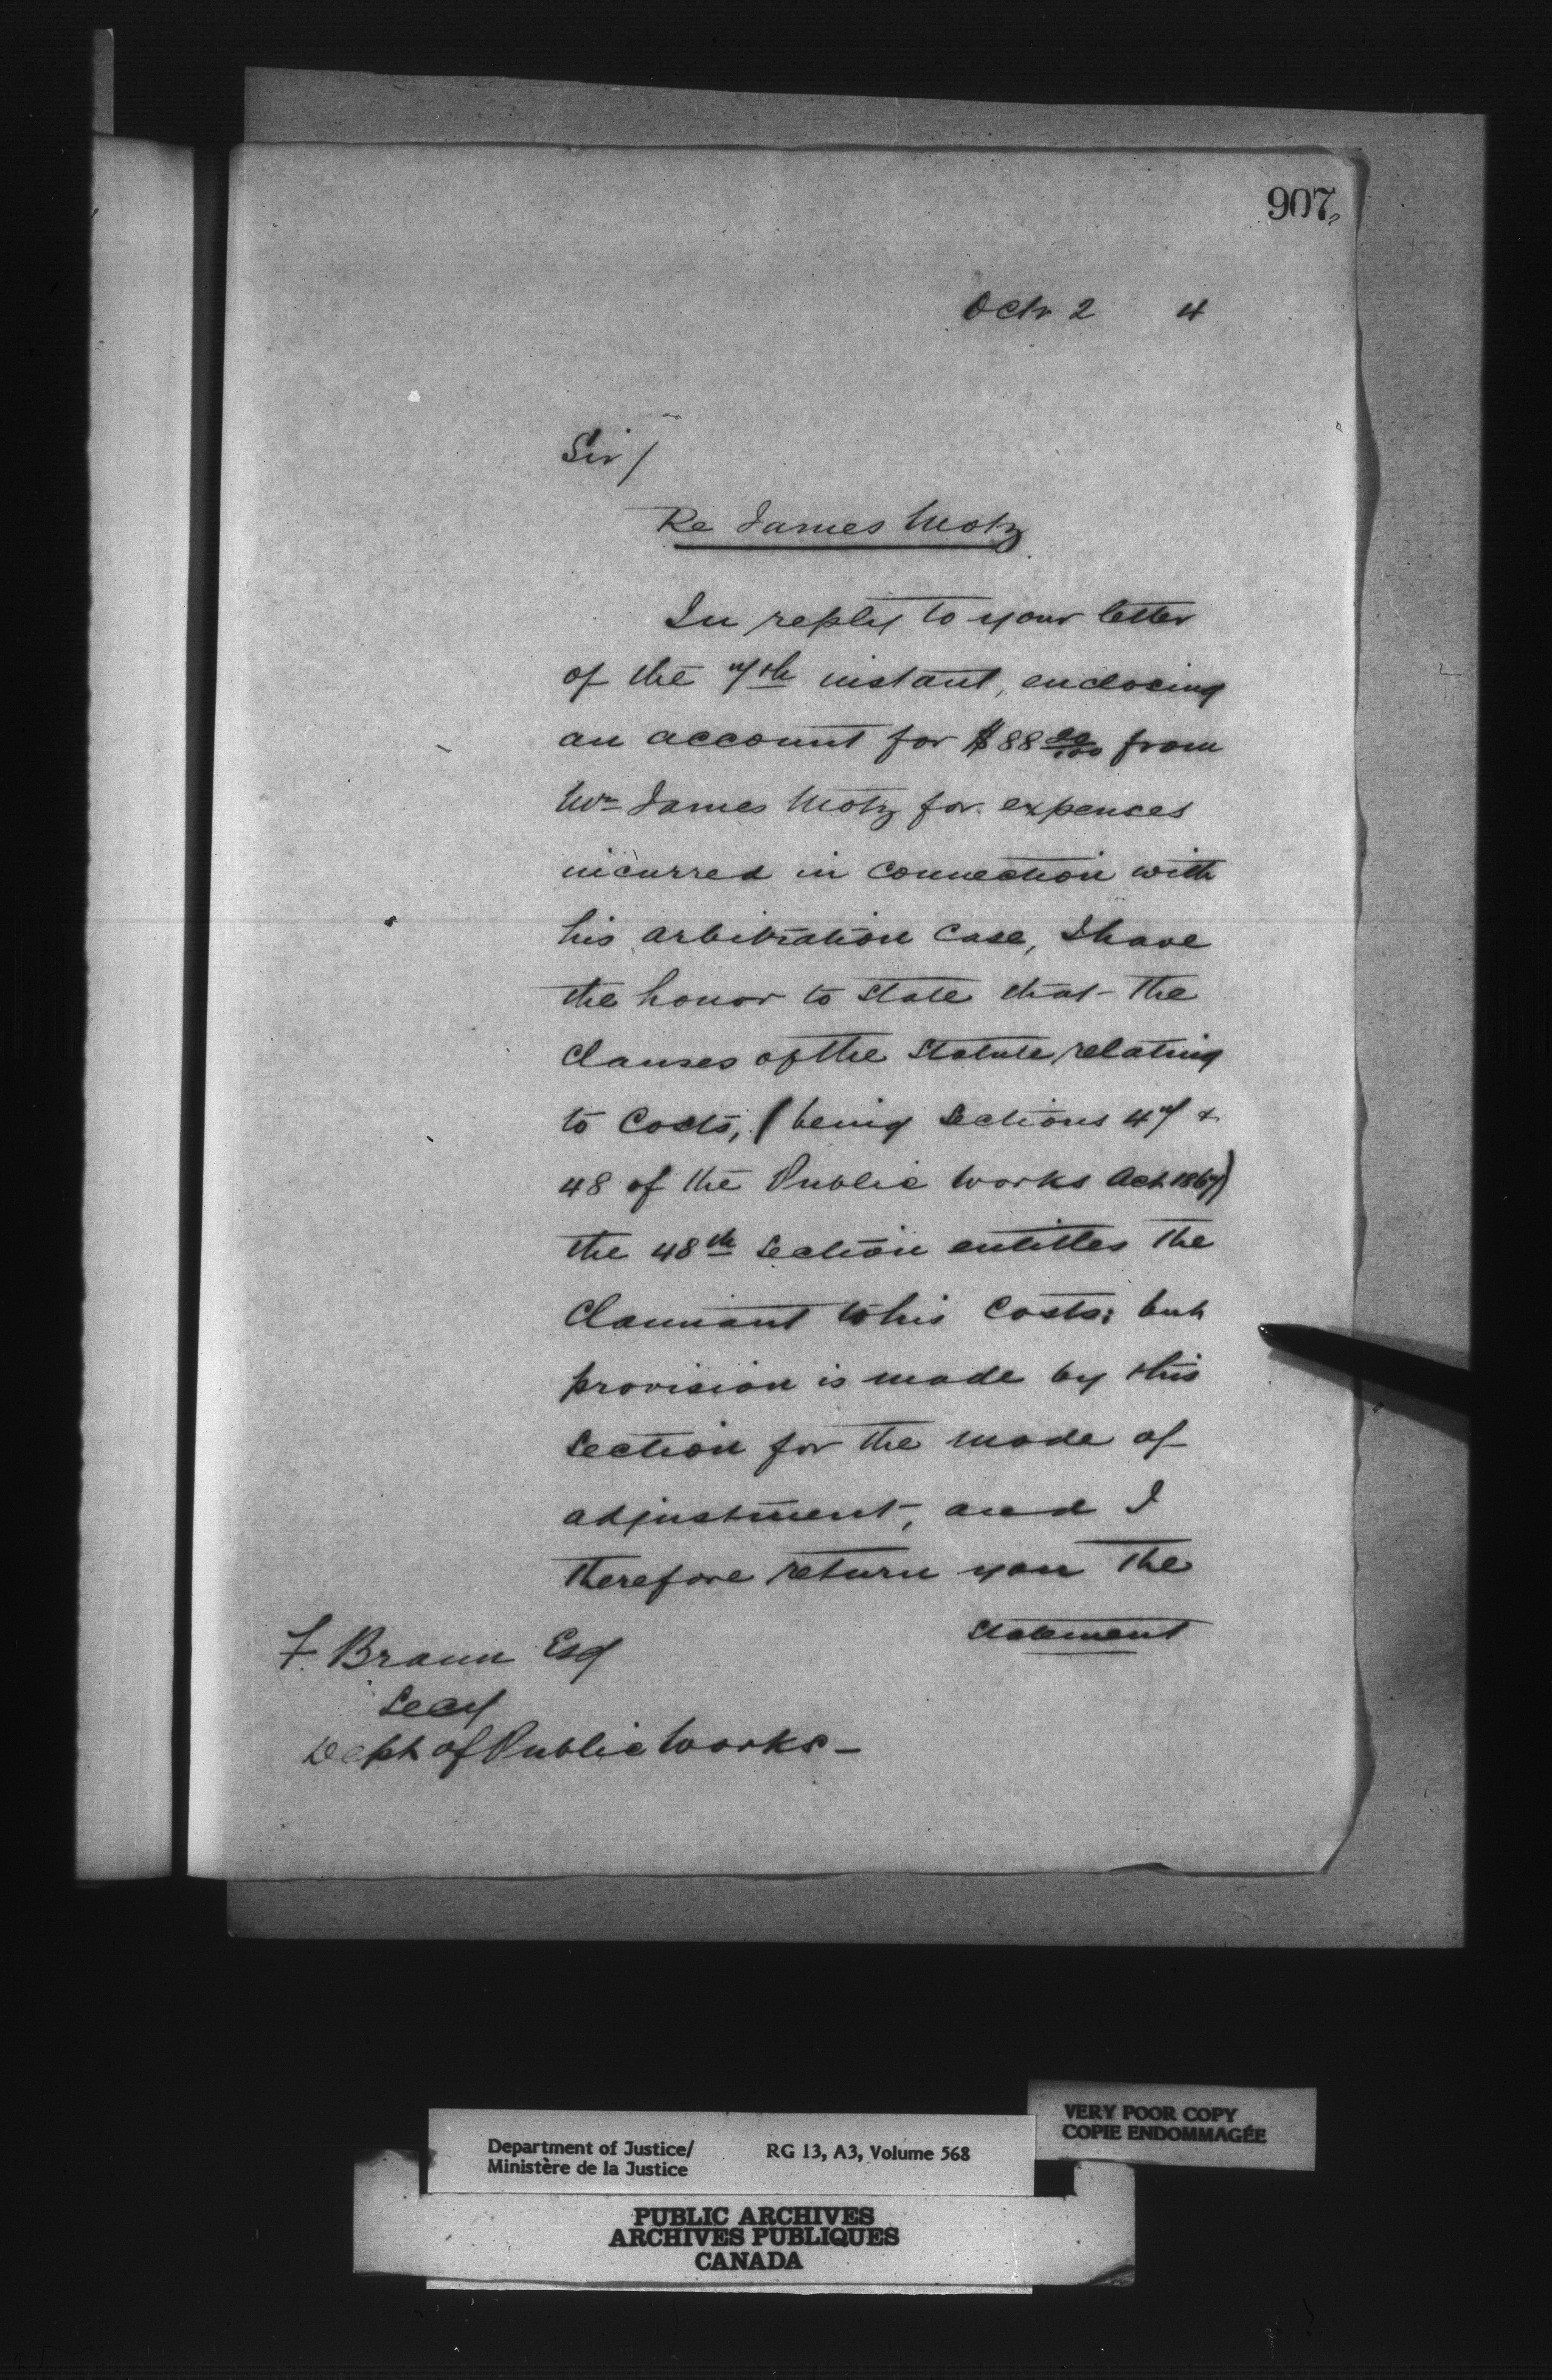 907
Octr 2 4
Sir/
Re James Motz
In reply to your letter
of the 7th instant, enclosing
an account for $88 20/100 from
Mr James Motz for expences
incurred in connection with
his arbitration case, I have
the honor to state that the
clauses of the statute relating
to Costs, (being sections 47 &
48 of the Public Works Act 1867)
the 48th section entitles the
Claimant to his Costs; but
provision is made by this
section for the mode of
adjustment, and I
therefore return you the
statement
F. Braun Esq
Secy
Dept of Public Works -
VERY POOR COPY
COPIE ENDOMMAGÉE
Department of Justice/ RG 13, A3, Volume 568
Ministère de la Justice
PUBLIC ARCHIVES
ARCHIVES PUBLIQUES
CANADA